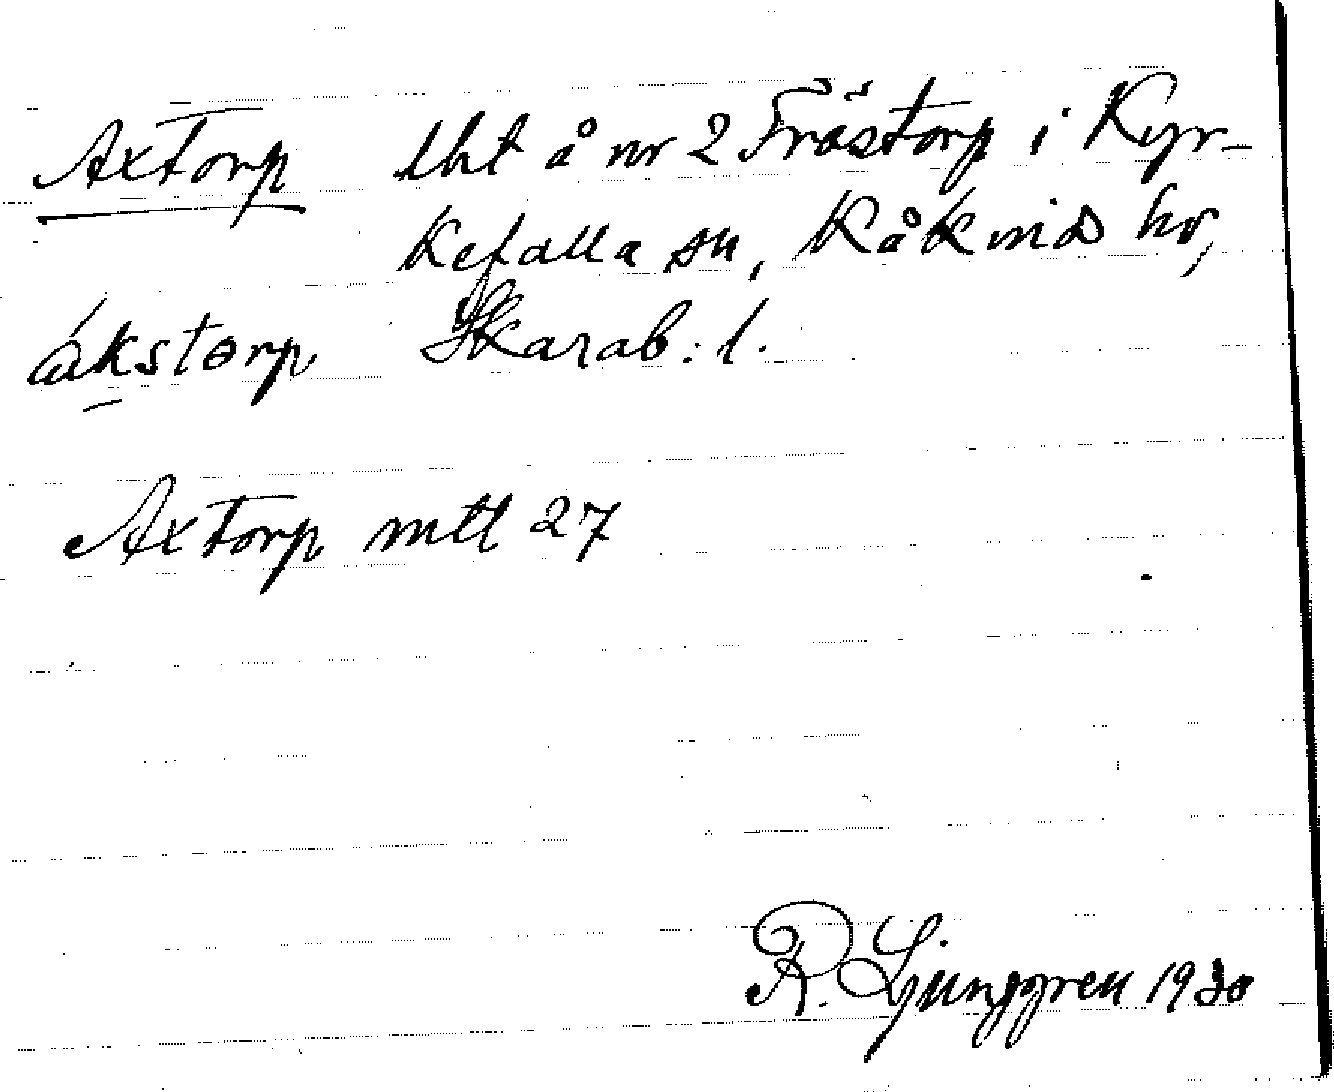 Axtorp lht å nr 2 Fröstorp i Kyr-
kefalla sn, Kåkinds hd,
ákstorp Skarab. l.
Axtorp mtl 27
R. Ljunggren 1930